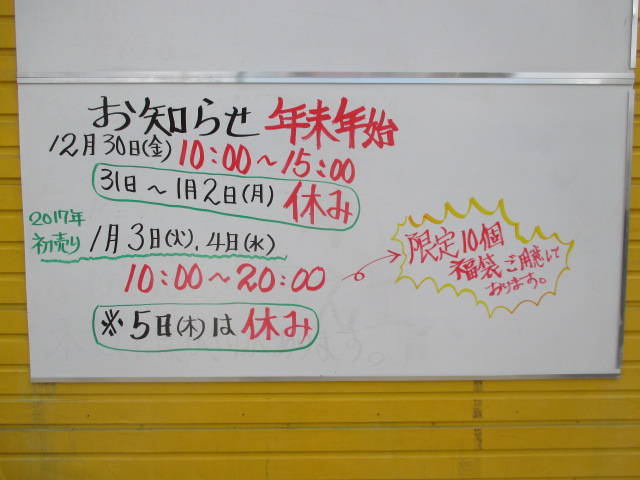 お知らせ 年末年始
12月30日(金) 10:00～15:00
31日～1月2日(月) 休み
2017年
初売り 1月3日(火).4日(水)
10:00～20:00
※5日(木)は休み
限定10個
福袋ご用意して
おります。